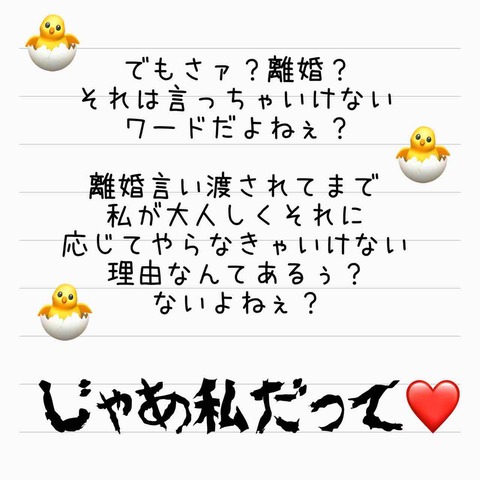 でもさァ？離婚？
それは言っちゃいけない
ワードだよねぇ？
離婚言い渡されてまで
私が大人しくそれに
応じてやらなきゃいけない
理由なんてあるぅ？
ないよねぇ？
じゃあ私だって❤️